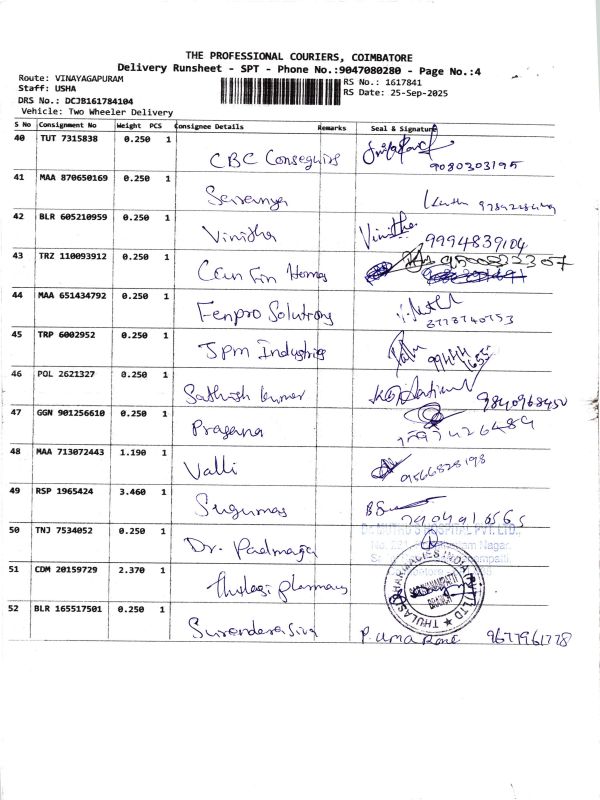 THE PROFESSIONAL COURIERS, COIMBATORE
Delivery Runsheet - SPT - Phone No.:9047080280 - Page No.:4
Route: VINAYAGAPURAM
RS No.: 1617841
Staff: USHA
RS Date: 25-Sep-2025
DRS No.: DCJB161784104
Vehicle: Two Wheeler Delivery
S No Consignment No Weight PCS Consignee Details Remarks Seal & Signature
40 TUT 7315838 0.250 1
CBC 9080303195
41 MAA 870650169 0.250 1
42 BLR 605210959 0.250 1
Vinitha Vinitha 9994839104
43 TRZ 110093912 0.250 1
Can Fin Homes
44 MAA 651434792 0.250 1
Fenpro Solutions
45 TRP 6002952 0.250 1
Jpm Industries
46 POL 2621327 0.250 1
Sathish kumar 9840968450
47 GGN 901256610 0.250 1
Prasana
48 MAA 713072443 1.190 1
Valli 9566828198
49 RSP 1965424 3.460 1
Sugumar
50 TNJ 7534052 0.250 1
Dr. Padmaja
51 CDM 20159729 2.370 1
Thulasi pharmacy
THULASI PHARMACIES INDIA (P) LTD
SARAVANAMPATTI
BRANCH
52 BLR 165517501 0.250 1
Surendera Siva P. Uma Rani 9677961778